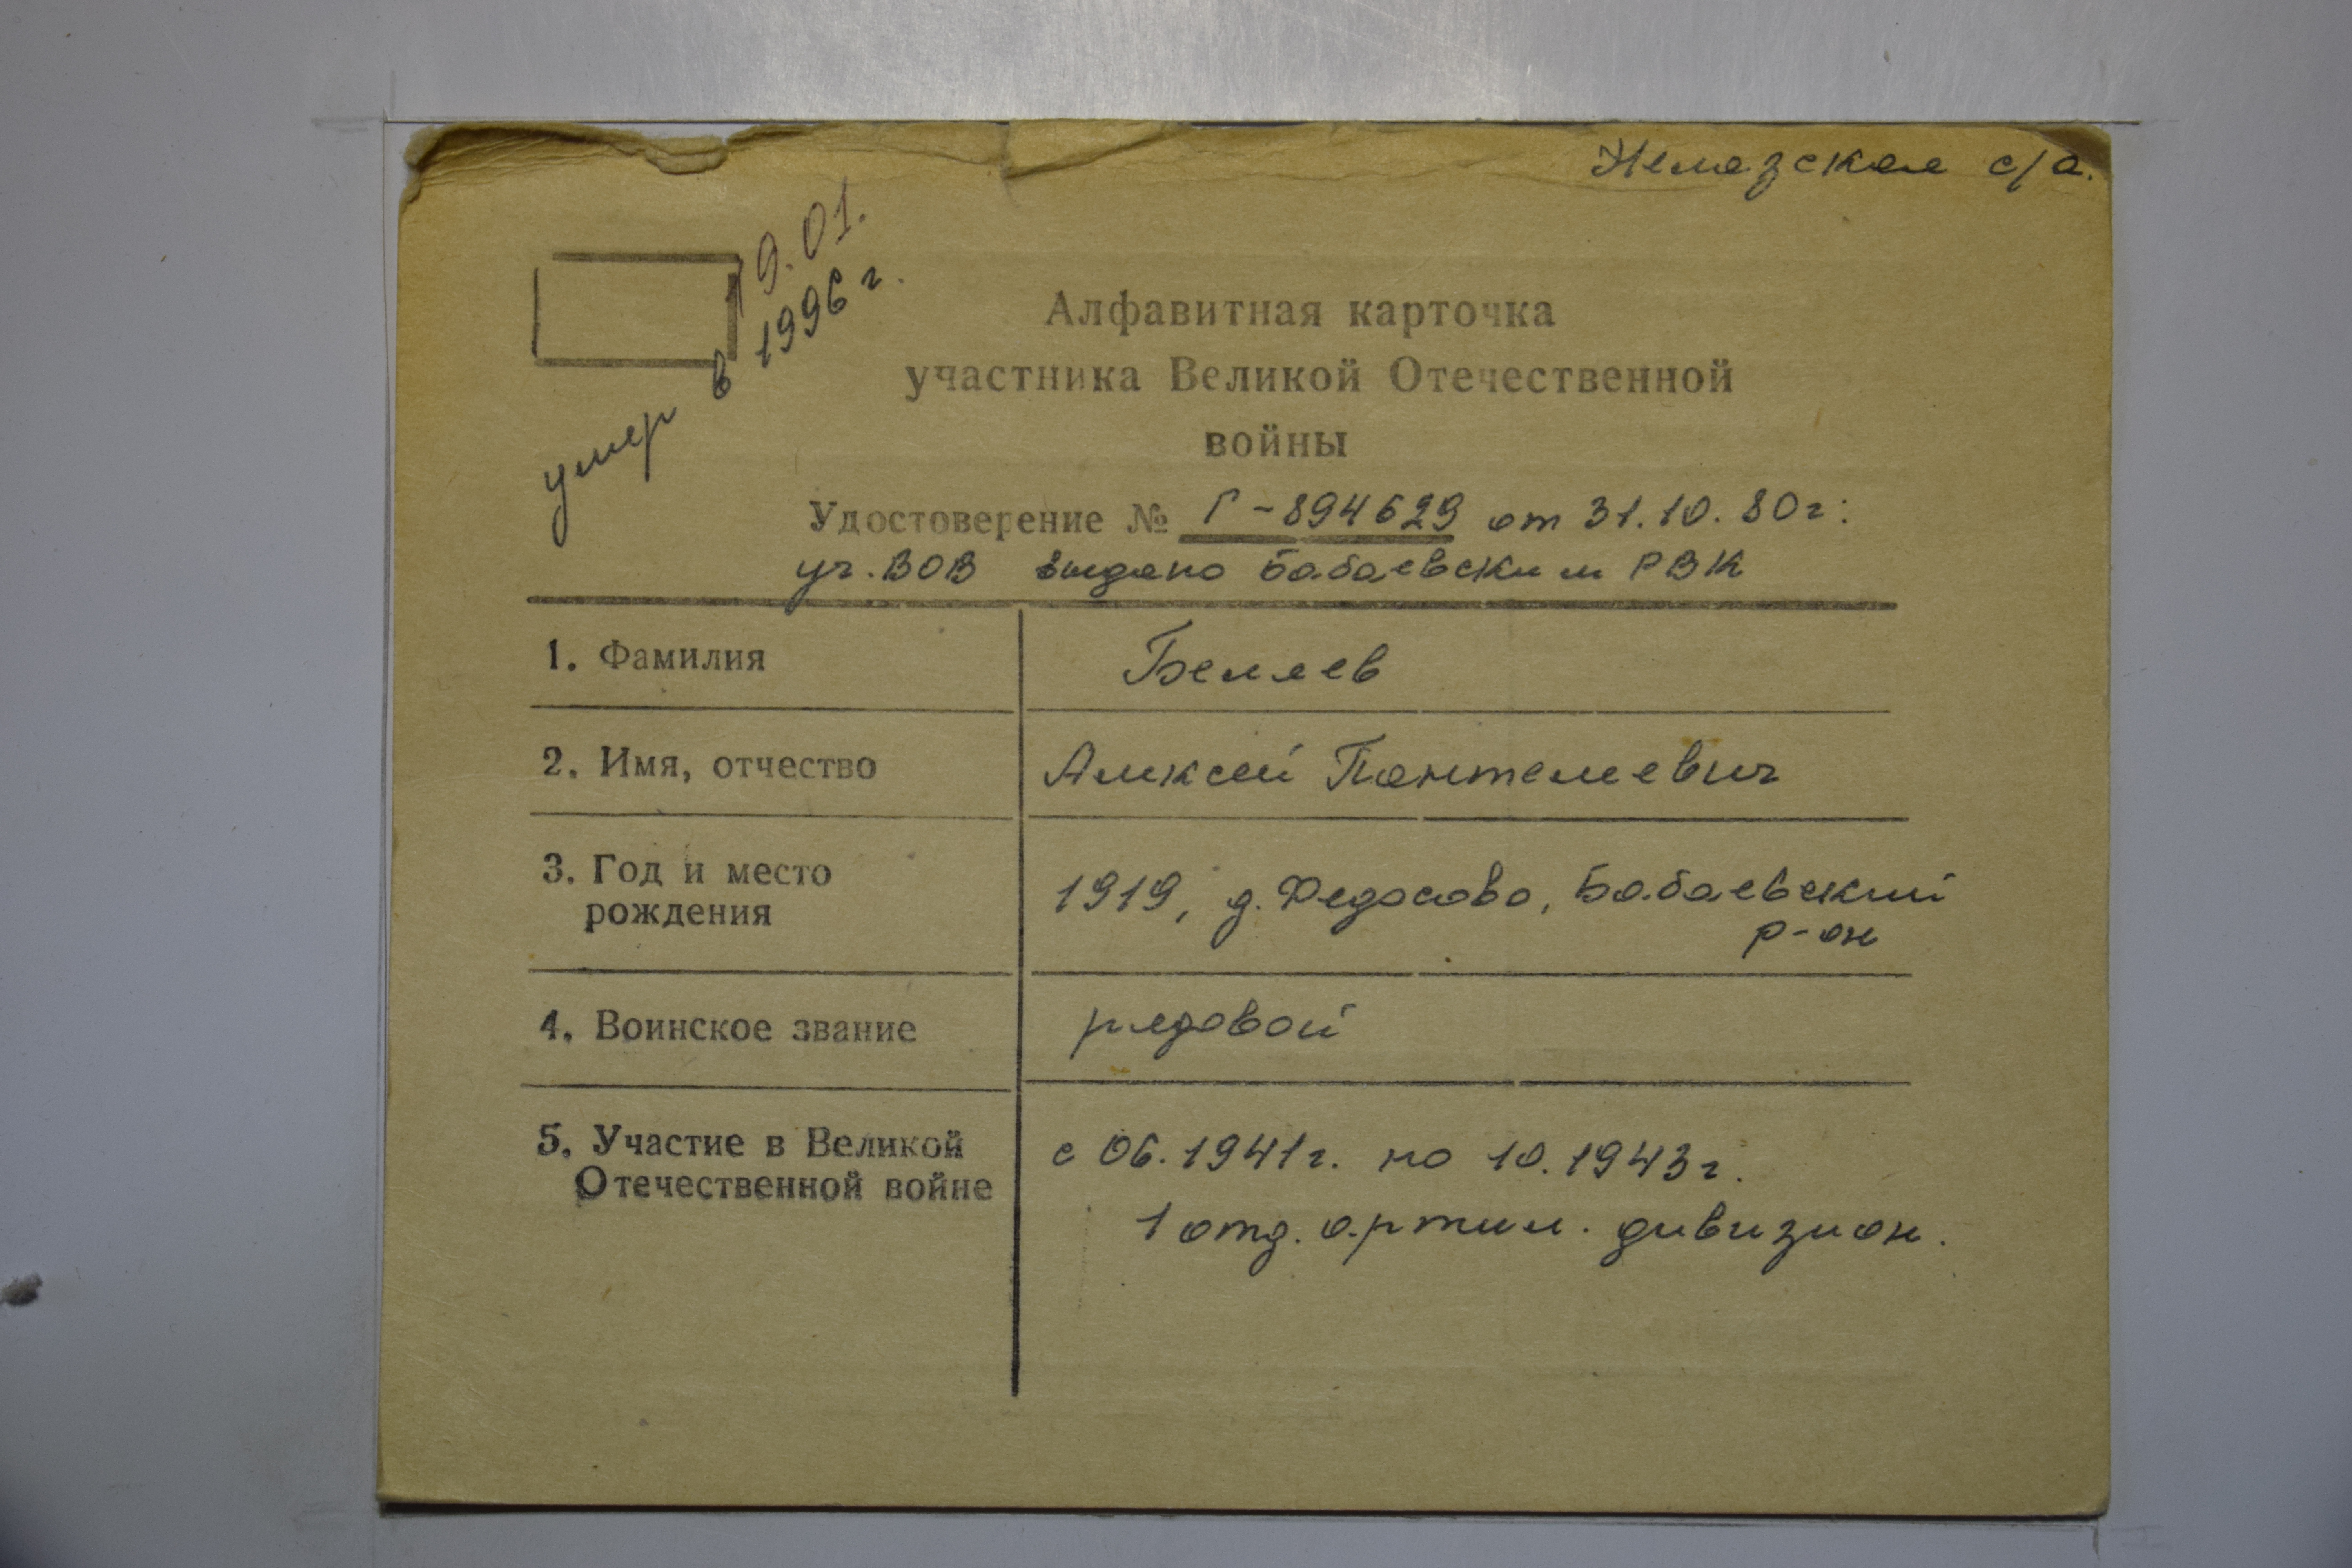 Немазская с/а.
19.01.
умер в 1996 г.
Алфавитная карточка
участника Великой Отечественной
войны
Удостоверение № Г-894629 от 31.10.80г.
уч. ВОВ выдано Бабаевским РВК
1. Фамилия Беляев
2. Имя, отчество Алексей Пантелеевич
3. Год и место рождения 1919, д. Федосово, Бабаевский р-он
4. Воинское звание рядовой
5. Участие в Великой Отечественной войне с 06.1941г. по 10.1943г.
1 отд. артил. дивизион.